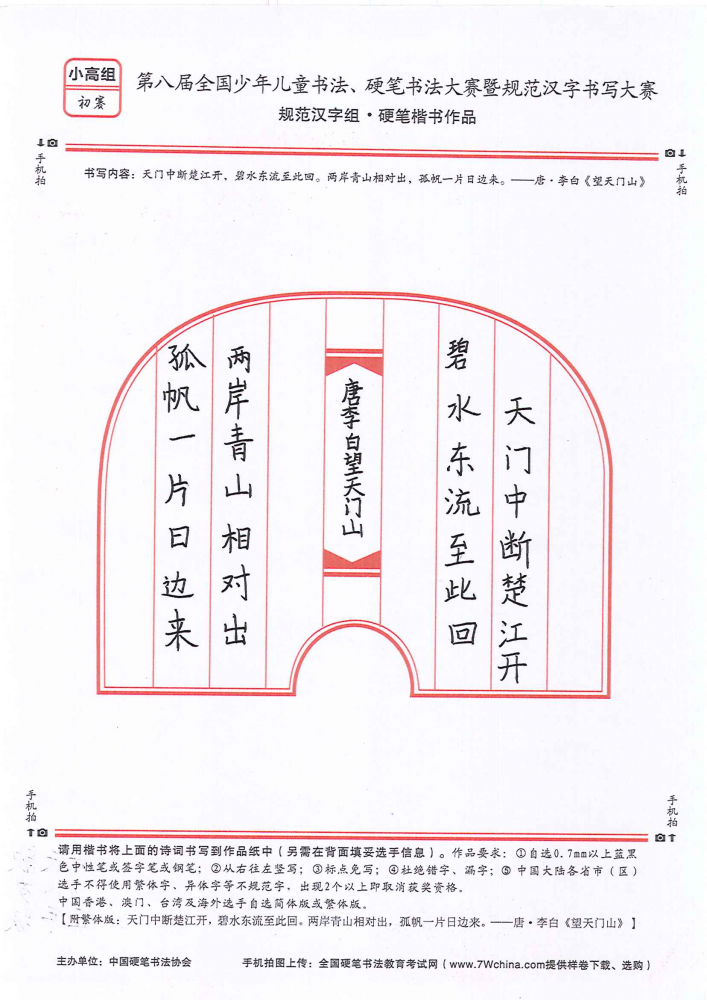 小高组
初赛
第八届全国少年儿童书法、硬笔书法大赛暨规范汉字书写大赛
规范汉字组·硬笔楷书作品
手机拍
手机拍
书写内容：天门中断楚江开，碧水东流至此回。两岸青山相对出，孤帆一片日边来。——唐·李白《望天门山》
天门中断楚江开
碧水东流至此回
唐李白望天门山
两岸青山相对出
孤帆一片日边来
手机拍
手机拍
请用楷书将上面的诗词书写到作品纸中（另需在背面填妥选手信息）。作品要求：①自选0.7mm以上蓝黑
色中性笔或签字笔或钢笔；②从右往左竖写；③标点免写；④杜绝错字、漏字；⑤中国大陆各省市（区）
选手不得使用繁体字、异体字等不规范字，出现2个以上即取消获奖资格。
中国香港、澳门、台湾及海外选手自选简体版或繁体版。
【附繁体版：天门中断楚江开，碧水东流至此回。两岸青山相对出，孤帆一片日边来。——唐·李白《望天门山》】
主办单位：中国硬笔书法协会
手机拍图上传：全国硬笔书法教育考试网（www.7Wchina.com提供样卷下载、选购）